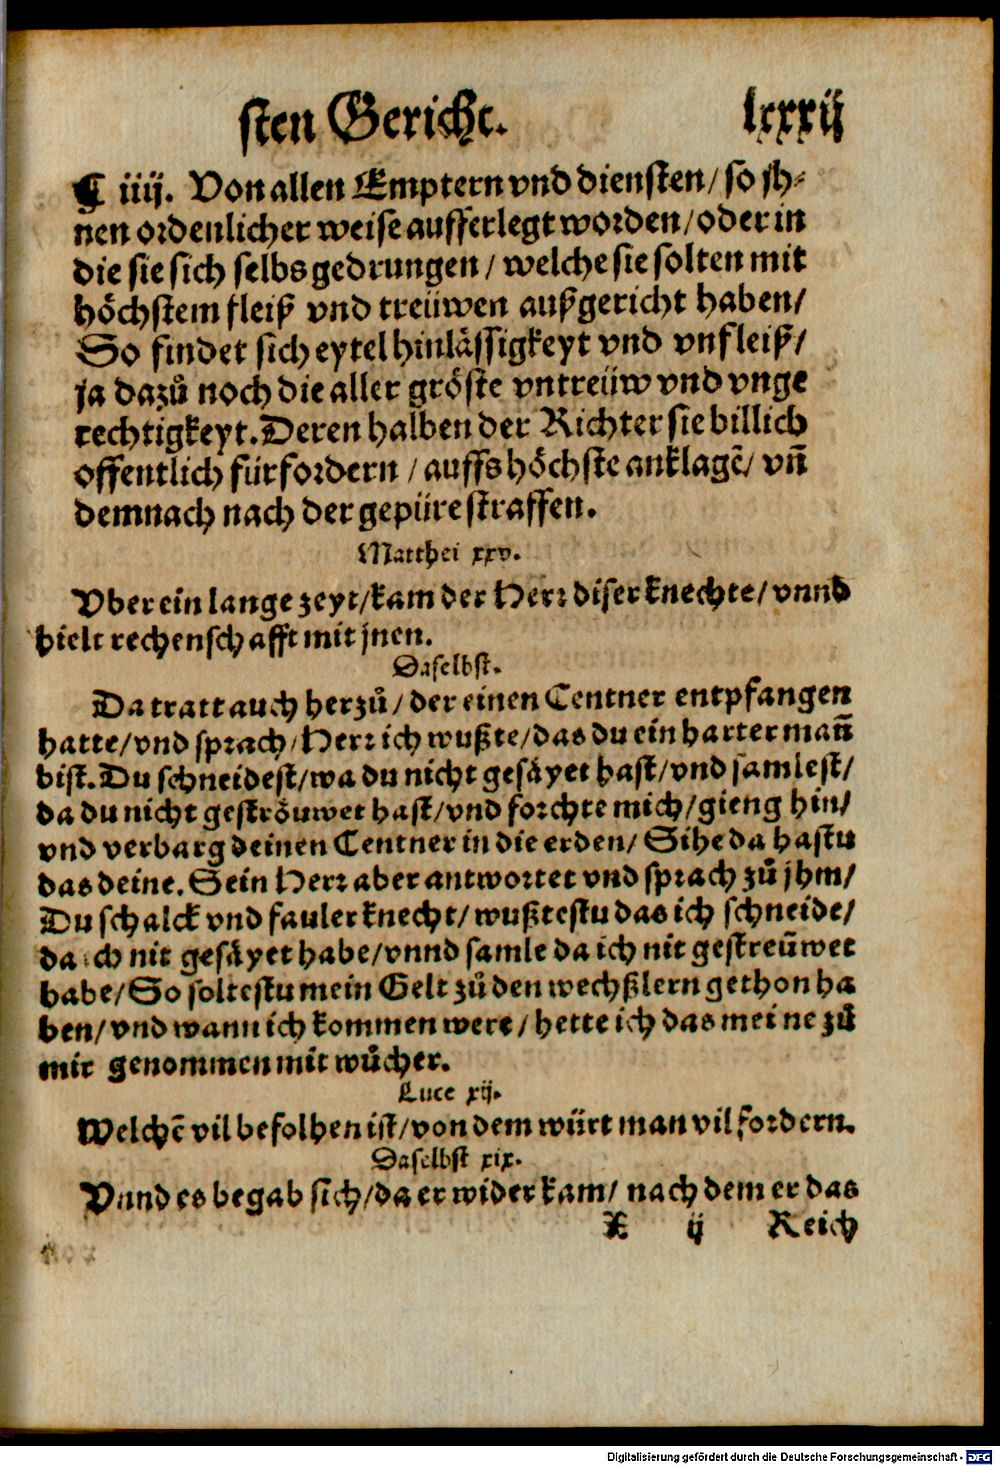 sten Gericht. lxxxij
¶ iiij. Von allen Emptern vnd diensten/ so jh⸗
nen ordenlicher weise aufferlegt worden/ oder in
die sie sich selbs gedrungen/ welche sie solten mit
höchstem fleiß vnd treüwen außgericht haben/
So findet sich eytel hinlässigkeyt vnd vnfleiß/
ja dazů noch die aller gröste vntreüw vnd vnge
rechtigkeyt. Deren halben der Richter sie billich
offentlich fürfordern / auffs höchste anklagẽ/ vñ
demnach nach der gepüre straffen.
Matthei xxv.
Vber ein lange zeyt/ kam der Herr diser knechte/ vnnd
hielt rechenschafft mit jnen.
Daselbst.
Da tratt auch herzů/ der einen Centner entpfangen
hatte/ vnd sprach/ Herr ich wußte/ das du ein harter mañ
bist. Du schneidest/ wa du nicht gesäyet hast/ vnd samlest/
da du nicht geströuwet hast/ vnd forchte mich/ gieng hin/
vnd verbarg deinen Centner in die erden/ Sihe da hastu
das deine. Sein Herr aber antwortet vnd sprach zů jhm/
Du schalck vnd fauler knecht/ wußtestu das ich schneide/
da ich nit gesäyet habe/ vnnd samle da ich nit gestreüwet
habe/ So soltestu mein Gelt zů den wechßlern gethon ha
ben/ vnd wann ich kommen were/ hette ich das meine zů
mir genommen mit wůcher.
Luce xij.
Welchẽ vil befolhen ist/ von dem würt man vil fordern.
Daselbst xix.
Vnnd es begab sich/ da er wider kam/ nach dem er das
X ij Reich
Digitalisierung gefördert durch die Deutsche Forschungsgemeinschaft - DFG